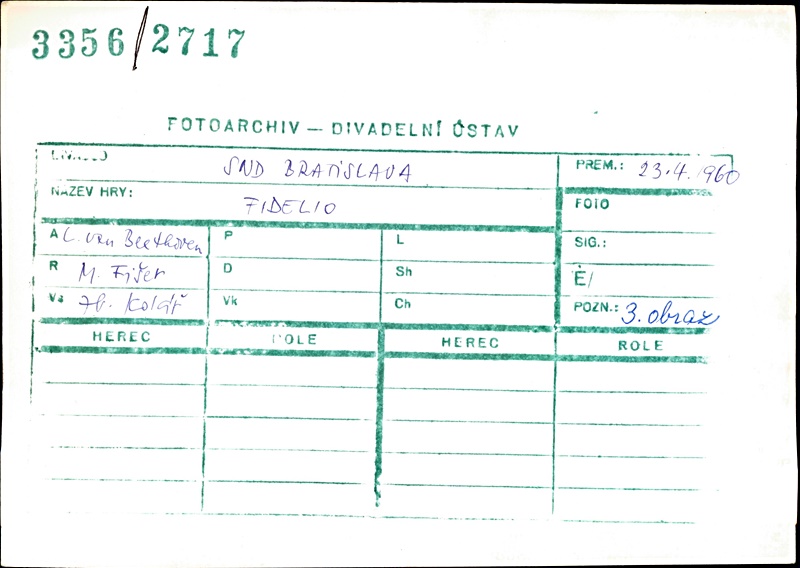 3356/2717
FOTOARCHIV — DIVADELNÍ ÚSTAV
SND BRATISLAVA
PREM.: 23.4.1960
NÁZEV HRY: FIDELIO
FOTO
A L. van Beethoven P L
SIG.:
R M. Fišer D Sh
Č/
Vs Zb. Kolář Vk Ch
POZN.: 3. obraz
HEREC ROLE HEREC ROLE